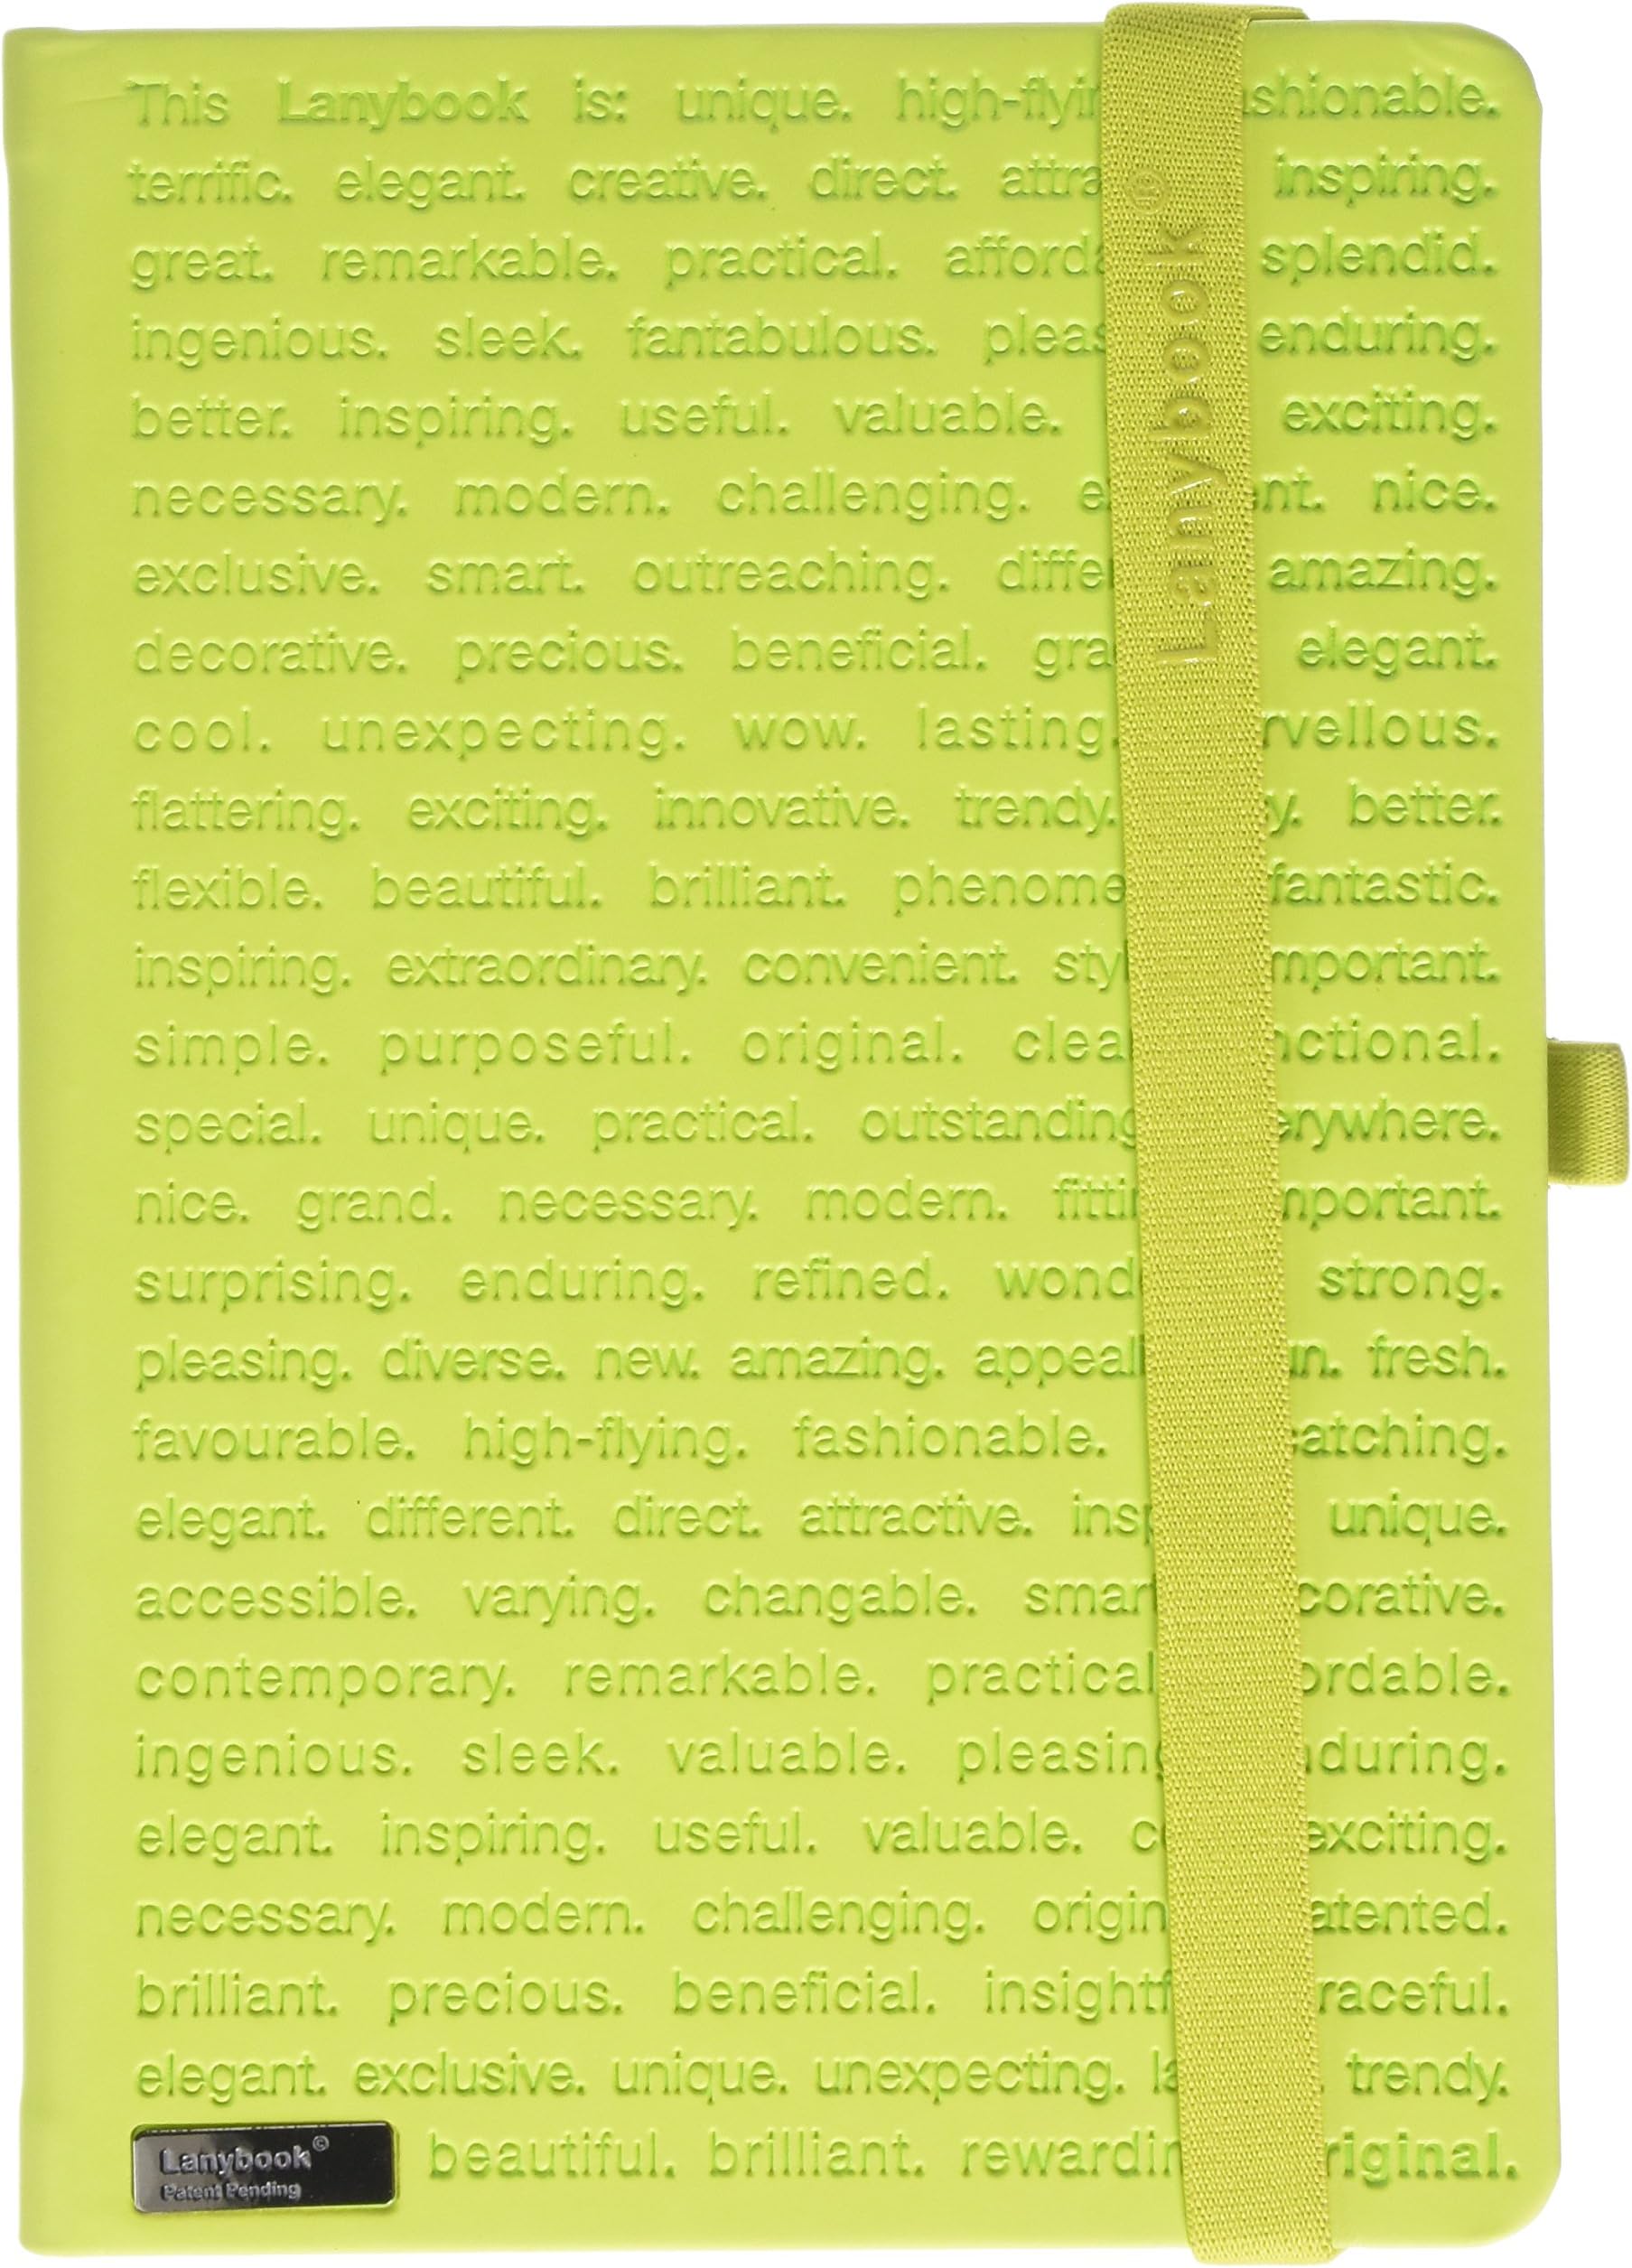 This Lanybook is: unique. high-flyin shionable.
terrific. elegant. creative. direct. attra inspiring.
great. remarkable. practical. afforda splendid.
ingenious. sleek. fantabulous. pleas enduring.
better. inspiring. useful. valuable. exciting.
necessary. modern. challenging. e nt. nice.
exclusive. smart. outreaching. differ amazing.
decorative. precious. beneficial. gra elegant.
cool. unexpecting. wow. lasting. rvellous.
flattering. exciting. innovative. trendy. y. better.
flexible. beautiful. brilliant. phenome fantastic.
inspiring. extraordinary. convenient. styl mportant.
simple. purposeful. original. clea nctional.
special. unique. practical. outstanding erywhere.
nice. grand. necessary. modern. fittin mportant.
surprising. enduring. refined. wond strong.
pleasing. diverse. new. amazing. appeali n. fresh.
favourable. high-flying. fashionable. catching.
elegant. different. direct. attractive. insp unique.
accessible. varying. changable. smart corative.
contemporary. remarkable. practical ordable.
ingenious. sleek. valuable. pleasing nduring.
elegant. inspiring. useful. valuable. co exciting.
necessary. modern. challenging. origin atented.
brilliant. precious. beneficial. insightf raceful.
elegant. exclusive. unique. unexpecting. la trendy.
beautiful. brilliant. rewardin riginal.
Lanybook©
Patent Pending
Lanybook®